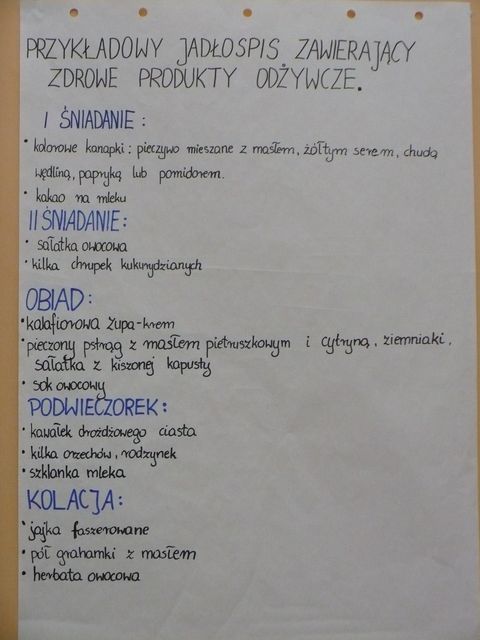 PRZYKŁADOWY JADŁOSPIS ZAWIERAJĄCY
ZDROWE PRODUKTY ODŻYWCZE.
I ŚNIADANIE:
• kolorowe kanapki: pieczywo mieszane z masłem, żółtym serem, chudą
wędliną, papryką lub pomidorem.
• kakao na mleku
II ŚNIADANIE:
• sałatka owocowa
• kilka chrupek kukurydzianych
OBIAD:
• kalafiorowa zupa-krem
• pieczony pstrąg z masłem pietruszkowym i cytryną, ziemniaki,
sałatka z kiszonej kapusty
• sok owocowy
PODWIECZOREK:
• kawałek drożdżowego ciasta
• kilka orzechów, rodzynek
• szklanka mleka
KOLACJA:
• jajka faszerowane
• pół grahamki z masłem
• herbata owocowa